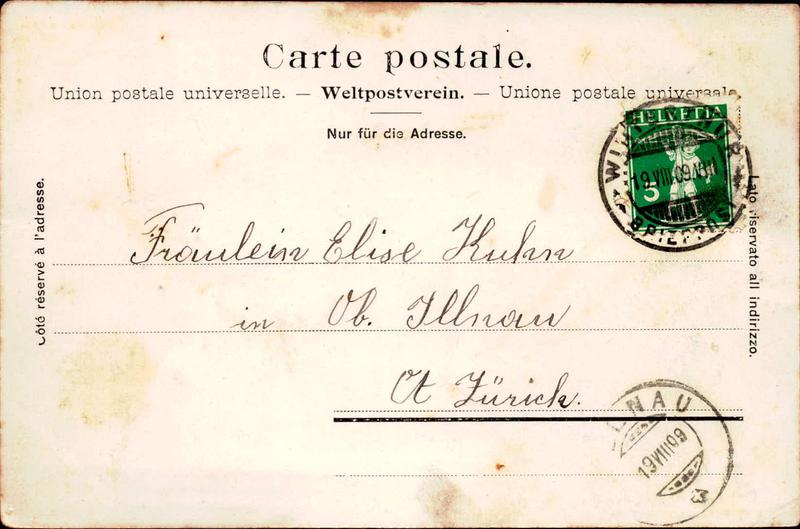 Carte postale.
Union postale universelle. — Weltpostverein. — Unione postale universale
Nur für die Adresse.
HELVETIA
5
19.VIII.09
BRIEFPOST
Côté réservé à l'adresse.
Lato riservato all indirizzo.
Fräulein Elise Kuhn
in Ob. Illnau
Ct Zürich.
LNAU
19 VIII 09